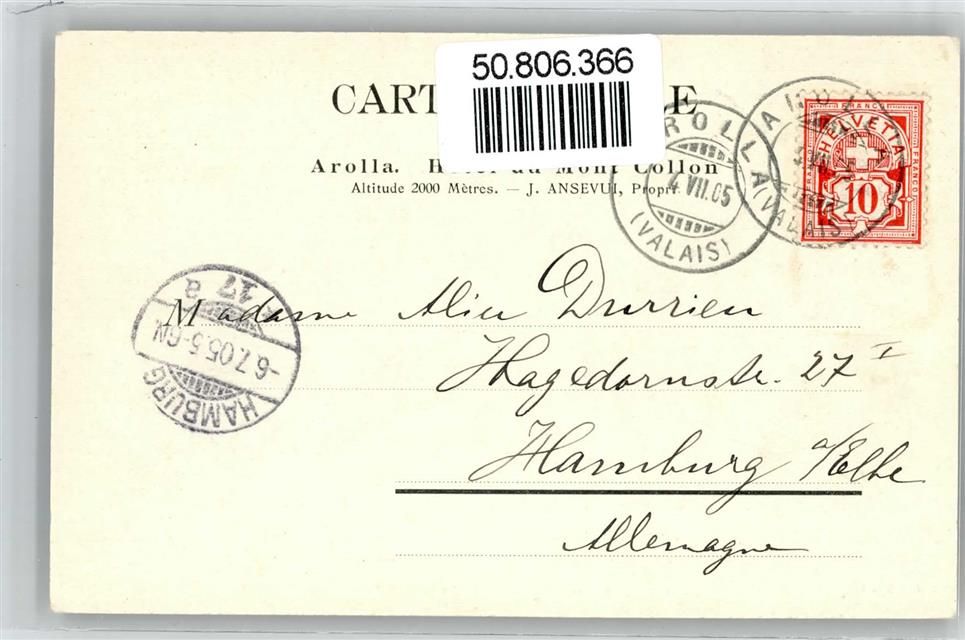 50.806.366
CART E
Arolla. Hotel du Mont Collon
Altitude 2000 Mètres. — J. ANSEVUI, Propri
AROLLA
4 VII.05
(VALAIS)
AROLLA
(VALAIS)
FRANCO
HELVETIA
FRANCO
FRANCO
10
17 a
-6.7.05.5-6N
HAMBURG
Madame Alice Durrieu
Hagedornstr. 27 I
Hamburg a/Elbe
Allemagne